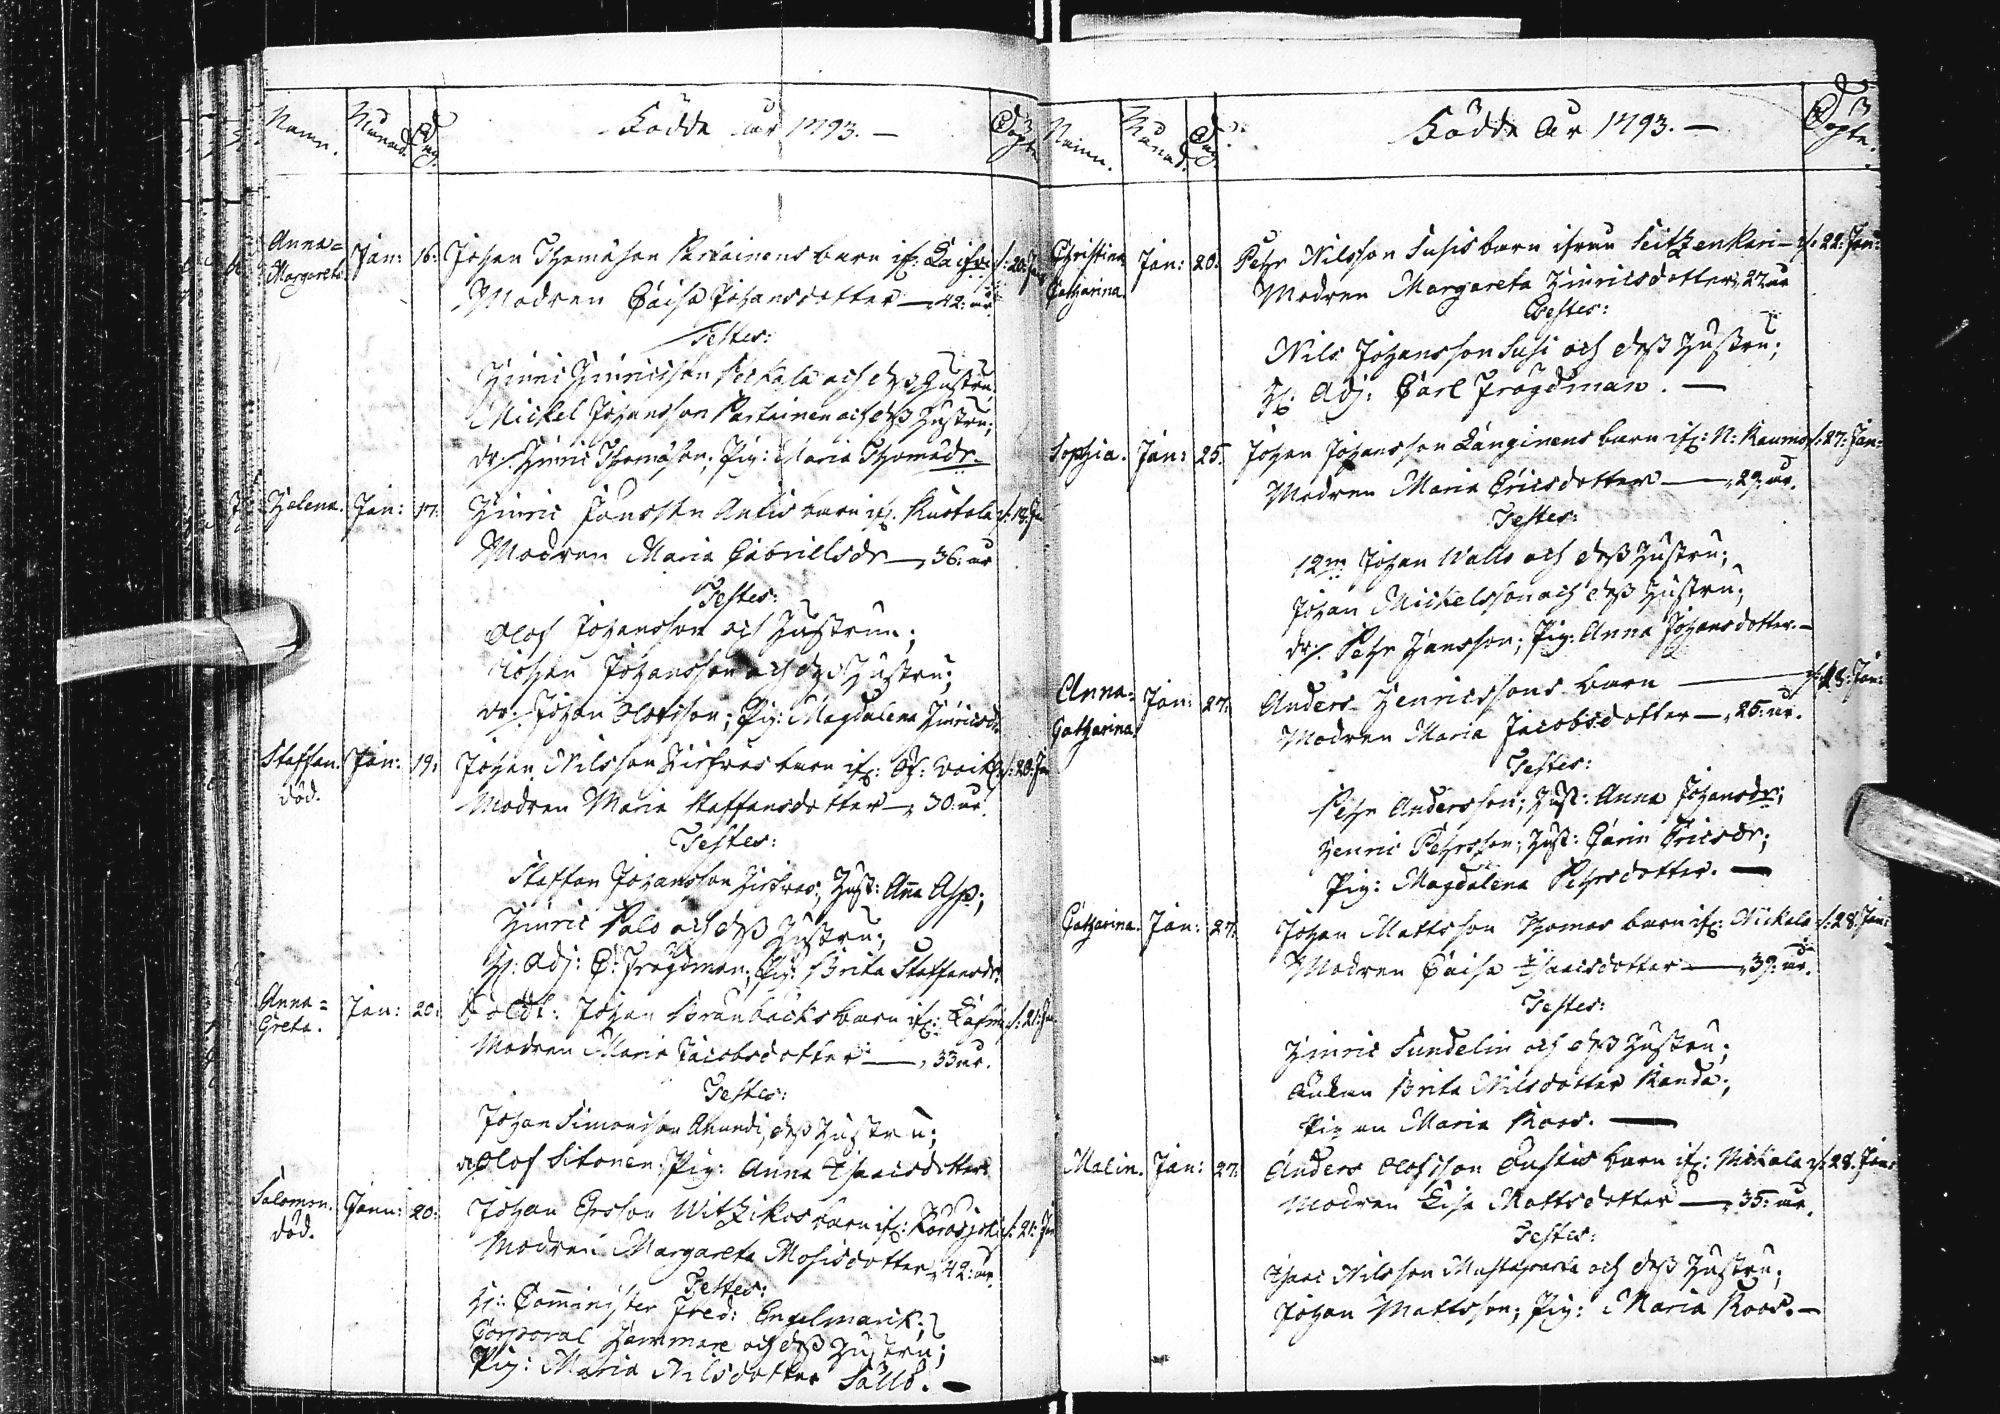 Namn. Månad. Dag. Födde År 1793. — Döpte
Anna= Jan: 16: Johan Thomasson Partainens barn
Margareta. Modren Caisa Johansdotter — 42: år.
Testes:
Hinric Hinricsson och dess Hustru;
Mickel Johansson Partainen och dess Hustru;
dr/: Hinric Thomasson; Pig: Maria Thomædr. —
Helena. Jan: 17: Hinric Jönsson Anttis barn if: Ruskola d/: 18: Ja
Modren Maria Gabrielsdr — 36: år
Testes:
Olof Johansson och Hustrun;
Johan Johansson och dess Hustru;
dr/: Johan Olofsson; Pig: Magdalena Hinricsdr.
Staffan. Jan: 19: Johan Nilsson barn if: d/: 20: Ja
död. Modren Maria Staffansdotter — 30: år.
Testes:
Staffan Johansson; Hust: Anna Asp;
Hinric Palo och dess Hustru;
H: Adj: C: Frogdman; Pig: Brita Staffansdr.
Anna= Jan: 20: Soldt: Johan Brunbäcks barn if: d/: 21: Ja
Greta. Modren Maria Jacobsdotter — 33 år.
Testes:
Johan Simonsson Alamdi, dess Hustru;
dr. Olof Sitonen; Pig: Anna Isaacsdotter.
Salomon. Janu: 20: Johan Ersson Witzikos barn if: Korasjoki d/: 21: Ja
död. Modren Margareta Mosisdotter 42: år.
Testes:
H: Comminister Fred: Engelmarck;
Corporal Hammare och dess Hustru;
Pig: Maria Nilsdotter Sällö. —
Namn. Månad. Dag. Födde År 1793. — Döpte.
Christina Jan: 20: Pehr Nilsson Susis barn ifrån d/: 22: Jan:
Catharina. Modren Margareta Hinricsdotter, 27 år
Testes:
Nils Johansson Susi och dess Hustru;
H: Adj: Carl Frogdman. —
Sophia. Jan: 25. Johan Johansson Länginens barn if: N: Raumo d/: 27: Jan:
Modren Maria Ericsdotter — 29: år.
Testes:
12m: Johan Wallo och dess Hustru;
Johan Mickelsson och dess Hustru;
dr/: Pehr Jansson; Pig: Anna Johansdotter. —
Anna= Jan: 27: Anders Henricssons barn — d/: 28: Jan:
Catharina. Modren Maria Jacobsdotter — 25: år.
Testes:
Pehr Andersson; Hust: Anna Johansdr;
Henric Pehrsson; Hust: Carin Ericsdr;
Pig: Magdalena Pehrsdotter. —
Catharina. Jan: 27: Johan Mattsson Thomas barn if: Nickala d/: 28: Jan:
Modren Caisa Isaacsdotter — 39: år.
Testes:
Hinric Sundelin och dess Hustru;
Enkan Brita Nilsdotter Randa;
Pigan Maria Roos. —
Malin. Jan: 27: Anders Olofsson barn if: Nickala d/: 28: Jan:
Modren Lisa Mattsdotter — 35: år.
Testes:
Isaac Nilsson och dess Hustru;
Johan Mattsson; Pig: Maria Roos. —